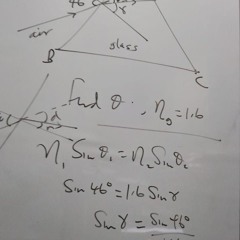 46
r
air
glass
B
C
Find θ . η_g = 1.6
η₁ Sinθ₁ = η₂ Sinθ₂
Sin 46° = 1.6 Sin r
Sin r = Sin 46°